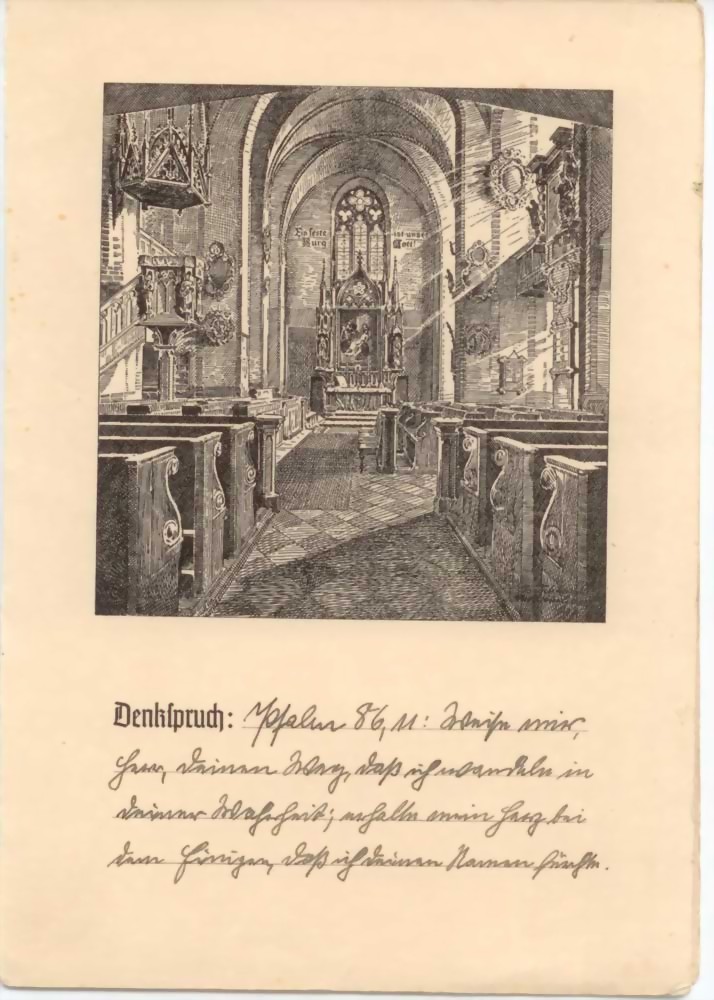 Ein feste
Burg
ist unser
Gott!
Denkspruch: Psalm 86, 11: Weise mir,
Herr, deinen Weg, daß ich wandle in
deiner Wahrheit; erhalte mein Herz bei
dem Einigen, daß ich deinen Namen fürchte.